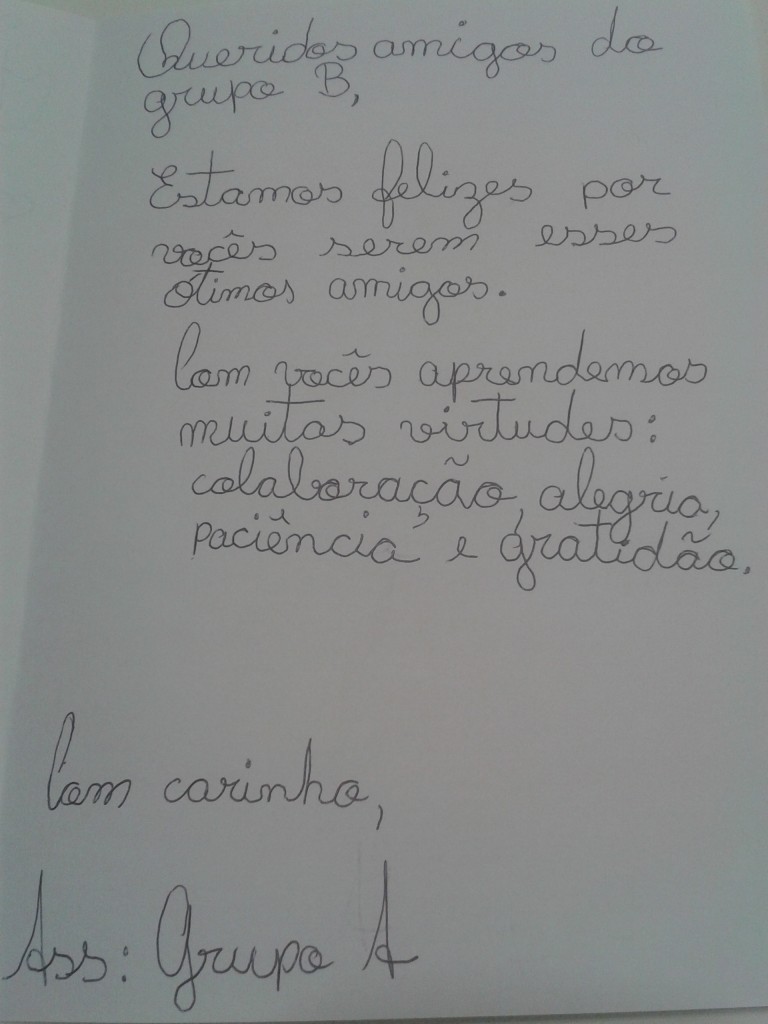 Queridos amigos do
grupo B,
Estamos felizes por
vocês serem esses
ótimos amigos.
Com vocês aprendemos
muitas virtudes:
colaboração, alegria,
paciência e gratidão.
Com carinho,
Ass: Grupo A